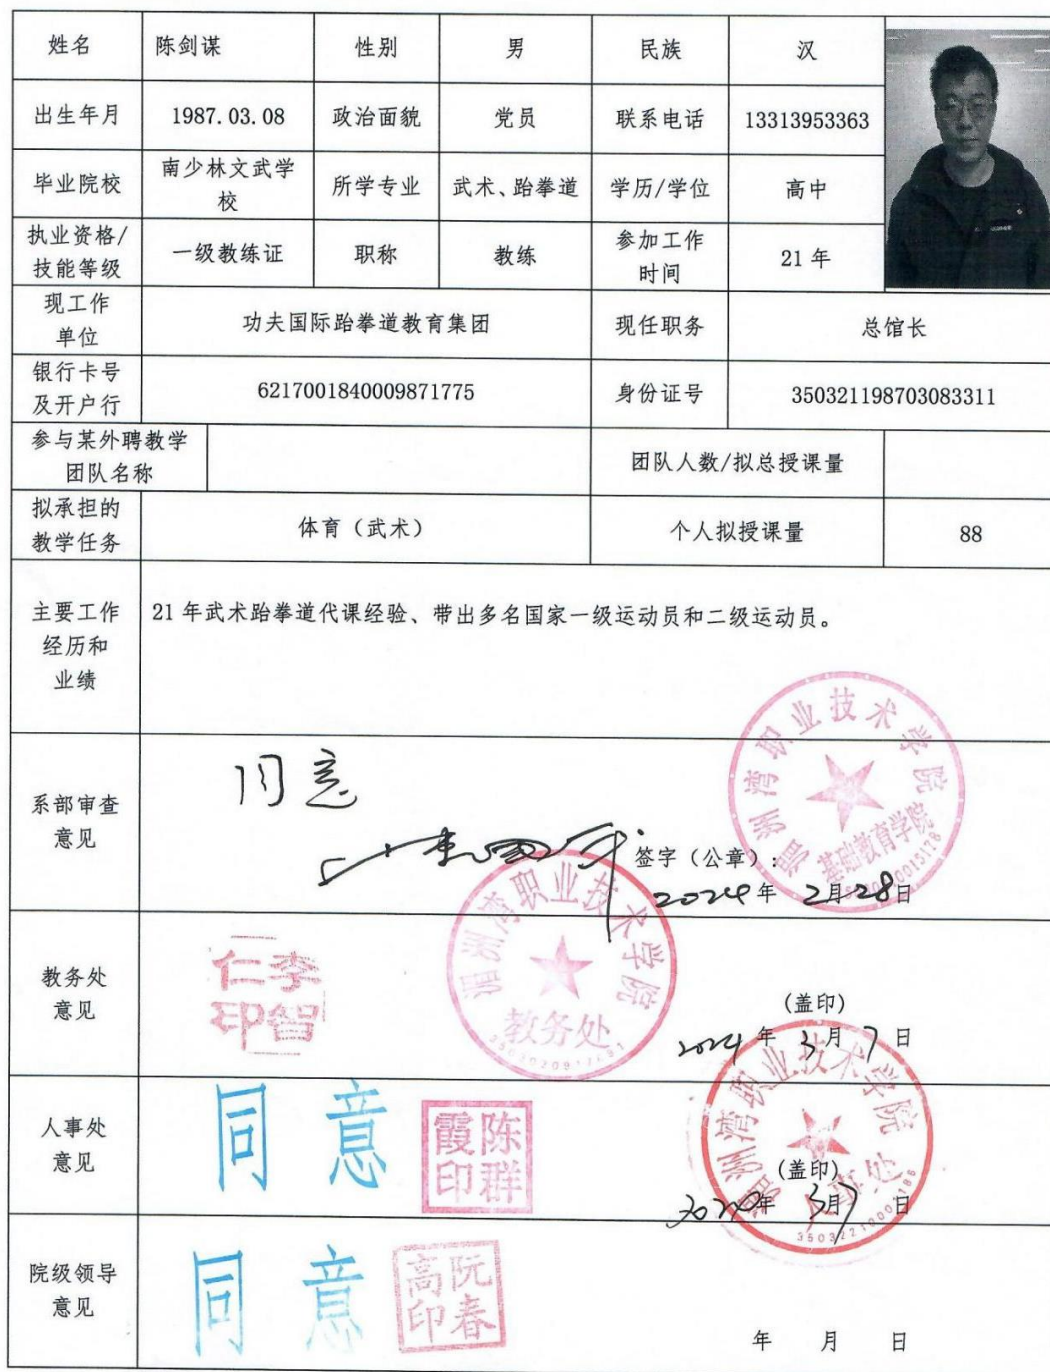 姓名 陈剑谋 性别 男 民族 汉
出生年月 1987.03.08 政治面貌 党员 联系电话 13313953363
毕业院校 南少林文武学
校 所学专业 武术、跆拳道 学历/学位 高中
执业资格/
技能等级 一级教练证 职称 教练 参加工作
时间 21 年
现工作
单位 功夫国际跆拳道教育集团 现任职务 总馆长
银行卡号
及开户行 6217001840009871775 身份证号 350321198703083311
参与某外聘教学
团队名称 团队人数/拟总授课量
拟承担的
教学任务 体育（武术） 个人拟授课量 88
主要工作
经历和
业绩
21 年武术跆拳道代课经验、带出多名国家一级运动员和二级运动员。
湄洲湾职业技术学院
基础教育学院
系部审查
意见
同意
签字（公章）：
2024年 2月28日
教务处
意见
李智仁印
湄洲湾职业技术学院
教务处
(盖印)
2024年 3月7日
人事处
意见
同意
陈群霞印
湄洲湾职业技术学院
人事处
(盖印)
年 3月7日
院级领导
意见
同意
阮春高印
年 月 日